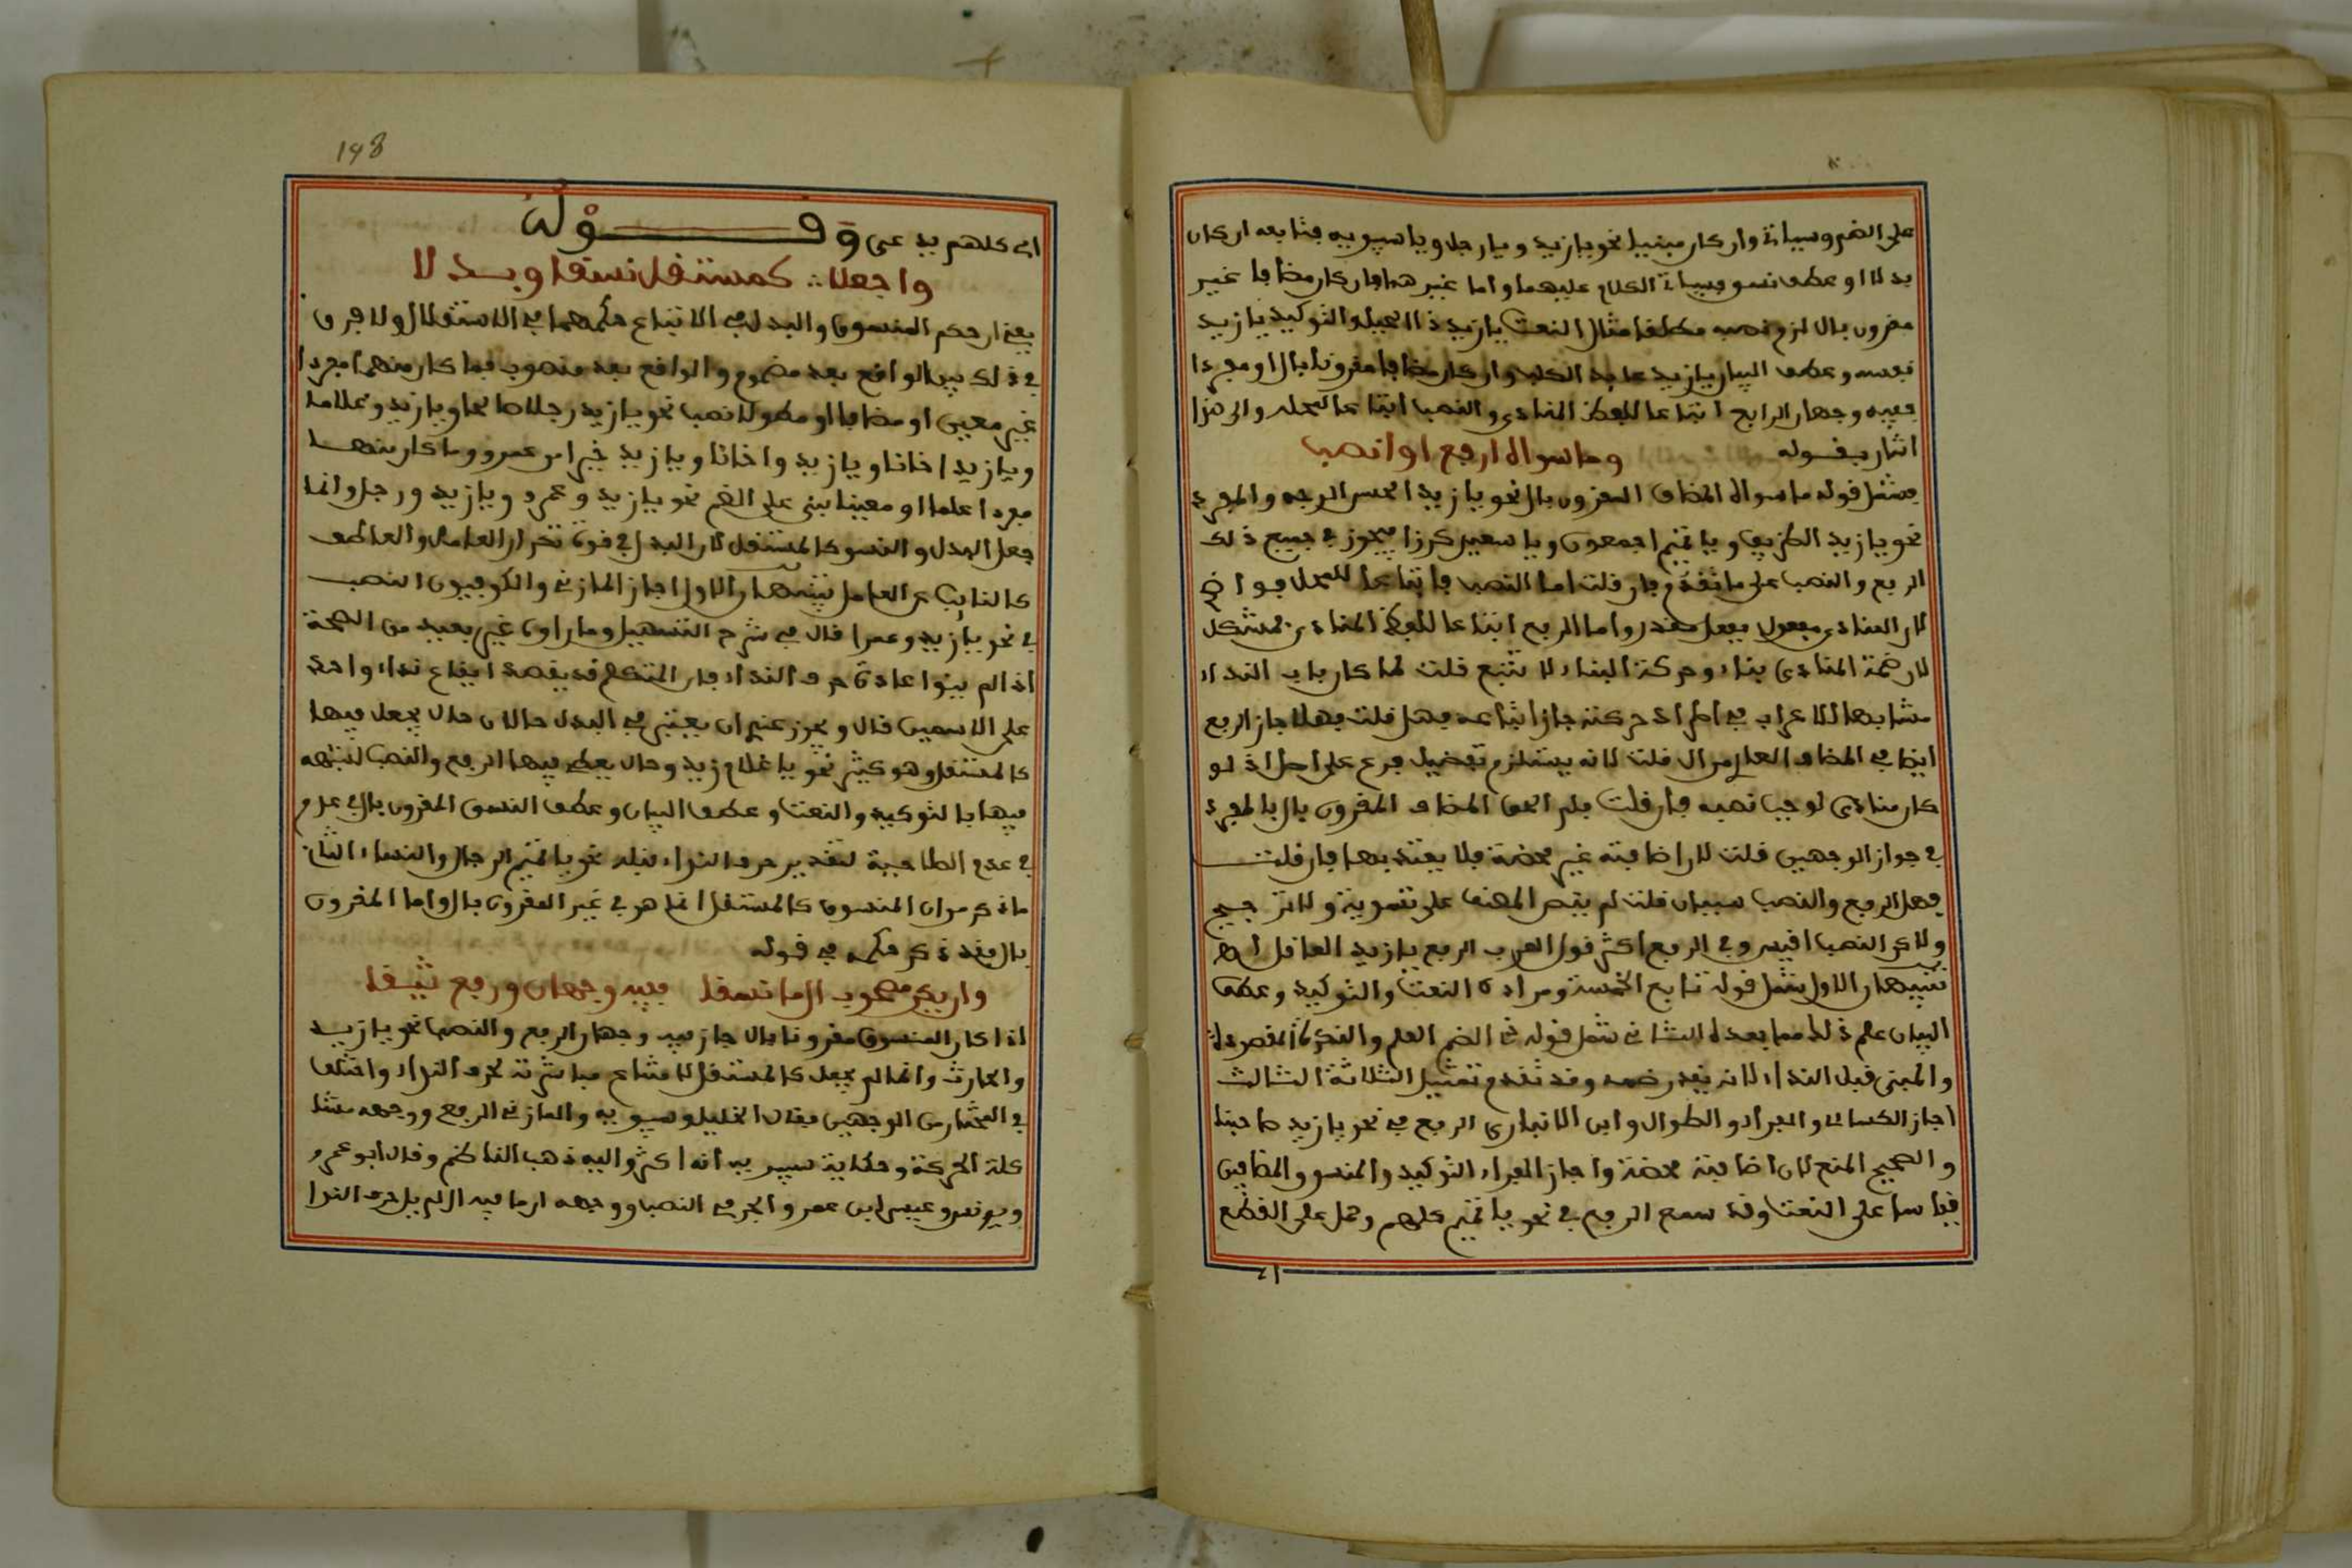 على الضم وسياتى وان كان مبنيا نحو يازيد ويا رجل ويا سيبويه فتابعه ان كان
بدلا او عطف نسق فسياتى الكلام عليهما واما غيرهما فان كان مضافا غير
مقرون بال لزم نصبه مطلقا مثال النعت يا زيد ذا الحيل والتوكيد يا زيد
نفسه وعطف البيان يا زيد عايد الكلب وان كان مضافا مقرونا بال او مفردا
ففيه وجهان الرفع اتباعا للفظ المنادى والنصب اتباعا لمحله والى هذا
اشار بقوله وما سواه ارفع او انصب
فشمل قوله ما سواه المضاف المقرون بال نحو يا زيد الحسن الوجه والمفرد
نحو يا زيد الظريف ويا تميم اجمعون ويا سعيد كرز فيجوز في جميع ذلك
الرفع والنصب على ما تقدم فان قلت اما النصب فاتباعا للمحل فواضح
لان المنادى مفعول بفعل مقدر واما الرفع اتباعا للفظ المنادى فمشكل
لان ضمة المنادى بناء وحركة البناء لا تتبع قلت لما كان باب النداء
مشابها للاعراب في اطراد حركته جاز اتباعه فان قلت فهلا جاز الرفع
ايضا في المضاف العار من ال قلت لانه يستلزم تفضيل فرع على اصل اذ لو
كان منادى لوجب نصبه فان قلت فلم الحق المضاف المقرون بال بالمفرد
في جواز الوجهين قلت لان اضافته غير محضة فلا يعتد بها فان قلت
فهل الرفع والنصب سيان قلت لم ينص المصنف على تسوية ولا ترجيح
ولاكن النصب اقيس وفي الرفع اكثر قول العرب الرفع يا زيد العاقل اه
تنبيهان الاول شمل قوله تابع الخمسة ومراده النعت والتوكيد وعطف
البيان علم ذلك مما بعده الثانى شمل قوله ذى الضم العلم والنكرة المقصودة
والمبنى قبل النداء لانه يقدر ضمه وقد تقدم تمثيل الثلاثة الثالث
اجاز الكسائى والفراء والطوال وابن الانبارى الرفع في نحو يا زيد صاحبنا
والصحيح المنع لان اضافته محضة واجاز الفراء التوكيد والمنسوق المضافين
قياسا على النعت وقد سمع الرفع في نحو يا تميم كلهم وحمل على القطع
اى
198
اى كلهم يدعى وقوله
واجعلا كمستقل نسقا وبدلا
يعنى ان حكم المنسوق والبدل في الاتباع حكمهما في الاستقلال ولا فرق
في ذلك بين الواقع بعد مضموم والواقع بعد منصوب فما كان منهما مفردا
غير معين او مضافا او مطولا نصب نحو يا زيد رجلا صالحا ويا زيد وغلاما
ويا زيد اخانا ويا زيد واخانا ويا زيد خيرا من عمرو وما كان منهما
مفردا علما او معينا بنى على الضم نحو يا زيد وعمرو ويا زيد ورجل وانما
جعل البدل والنسق كالمستقل لان البدل في قوة تكرار العامل والعاطف
كالنايب عن العامل تنبيهان الاول اجاز المازنى والكوفيون النصب
في نحو يا زيد وعمرا قال في شرح التسهيل وما راوه غير بعيد من الصحة
اذا لم ينو اعادة حرف النداء فان المتكلم قد يقصد ايقاع نداء واحد
على الاسمين قال ويجوز عندى ان يعتبر في البدل حالان حال يجعل فيها
كالمستقل وهو كثير نحو يا غلام زيد وحال يعطى فيها الرفع والنصب لشبهه
فيها بالتوكيد والنعت وعطف البيان وعطف النسق المقرون بال في عدم
في عدم الصلاحية لتقدير حرف النداء قبله نحو يا تميم الرجال والنساء الثان
ما ذكر من ان المنسوق كالمستقل انما هو في غير المقرون بال واما المقرون
بال فقد ذكر حكمه في قوله
وان يكن مصحوب ال ما نسقا ففيه وجهان ورفع ينتقى
اذا كان المنسوق مقرونا بال جاز فيه وجهان الرفع والنصب نحو يا زيد
والحارث وانما لم يجعل كالمستقل لامتناع مباشرته لحرف النداء واختلف
في المختار من الوجهين فقال الخليل وسيبويه والمازنى الرفع ووجهه مشا
كلة الحركة وحكاية سيبويه انه اكثر واليه ذهب الناظم وقال ابو عمرو
ويونس وعيسى ابن عمر والجرمى النصب ووجهه ان ما فيه ال لم يل حرف الندا